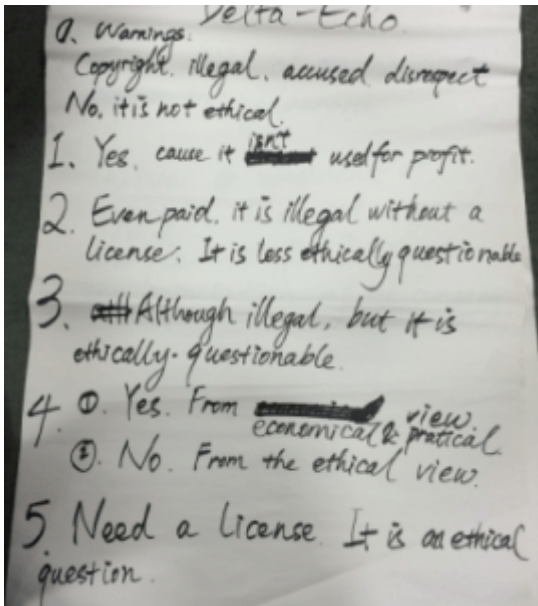 Delta-Echo.
0. Warnings.
Copyright. illegal. accused. disrespect
No, it is not ethical.
1. Yes. cause it isn't used for profit.
2. Even paid. it is illegal without a
license. It is less ethically questionable
3. Although illegal, but it is
ethically-questionable.
4. ①. Yes. From view.
economical & pratical
②. No. From the ethical view.
5. Need a license. It is an ethical
question.